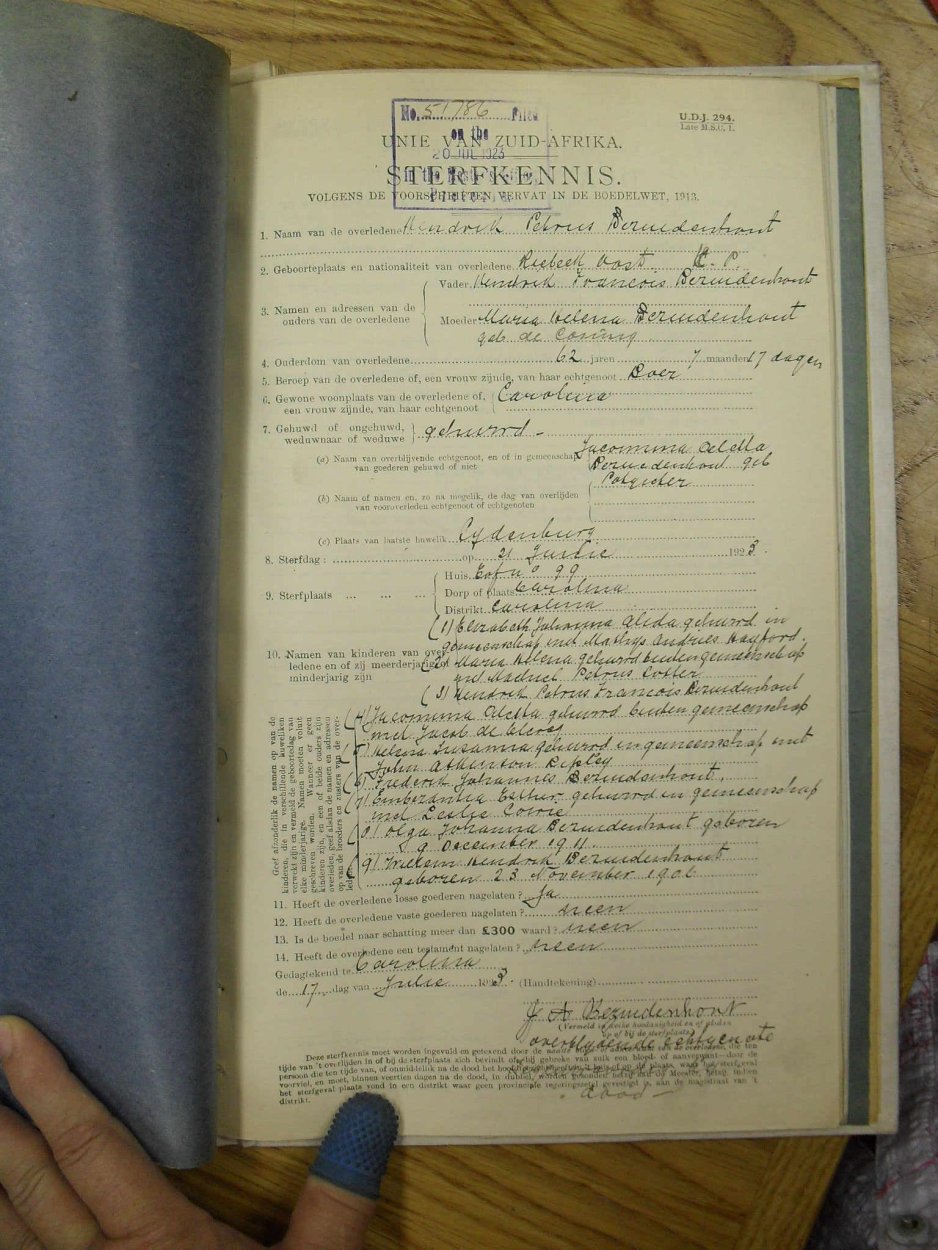 No. 51786 Filed
on the
20 JUL 1923
in the Master's Office,
Pretoria
U.D.J. 294.
Late M.S.C. 1.
UNIE VAN ZUID-AFRIKA.
STERFKENNIS.
VOLGENS DE VOORSCHRIFTEN, VERVAT IN DE BOEDELWET, 1913.
1. Naam van de overledene Hendrik Petrus Bezuidenhout
2. Geboorteplaats en nationaliteit van overledene Riebeek Oost K. P.
3. Namen en adressen van de ouders van de overledene
Vader Hendrik Francois Bezuidenhout
Moeder Maria Helena Bezuidenhout
geb de Coning
4. Ouderdom van overledene 62 jaren 7 maanden 17 dagen
5. Beroep van de overledene of, een vrouw zijnde, van haar echtgenoot Boer
6. Gewone woonplaats van de overledene of, Carolina
een vrouw zijnde, van haar echtgenoot
7. Gehuwd of ongehuwd, gehuwd -
weduwnaar of weduwe
(a) Naam van overblijvende echtgenoot, en of in gemeenschap Jacomina Aletta
van goederen gehuwd of niet Bezuidenhout geb
Potgieter
(b) Naam of namen en, zo na mogelik, de dag van overlijden
van vooroverleden echtgenoot of echtgenoten
(c) Plaats van laatste huwelik Lydenburg
8. Sterfdag: op 21 Junie 1923.
9. Sterfplaats
Huis Erf no 99
Dorp of plaats Carolina
Distrikt Carolina
10. Namen van kinderen van overledene en of zij meerderjarig of minderjarig zijn
(1) Elizabeth Johanna Alida gehuwd in
gemeenschap met Mathys Andries
(2) Maria Helena gehuwd buiten gemeenschap
met Petrus
(3) Hendrik Petrus Francois Bezuidenhout
(4) Jacomina Aletta gehuwd buiten gemeenschap
met Jacob de Clercq
(5) Helena Susanna gehuwd in gemeenschap met
John Atkinton Ripley
(6) Frederik Johannes Bezuidenhout.
(7) Esther gehuwd in gemeenschap
met Leslie
(8) Olga Johanna Bezuidenhout geboren
9 December 1911.
(9) Willem Hendrik Bezuidenhout
geboren 23 November 1906
Geef afzonderlik de namen op van de
kinderen, die in verschillende huweliken
verwekt zijn en vermeld de geboortedag van
elke minderjarige. Namen moeten voluit
geschreven worden. Wanneer er geen
kinderen zijn, en een of beide ouders zijn
overleden, geef alsdan de namen en adressen
op van de broeders en zusters van de over-
leden.
11. Heeft de overledene losse goederen nagelaten? Ja
12. Heeft de overledene vaste goederen nagelaten? neen
13. Is de boedel naar schatting meer dan £300 waard? neen
14. Heeft de overledene een testament nagelaten? neen
Gedagtekend te Carolina
de 17 dag van Julie 1923. (Handtekening)
J A Bezuidenhout
(Vermeld in welke hoedanigheid en of
op of bij de sterfplaats)
overblydende echtgenote
Deze sterfkennis moet worden ingevuld en getekend door de
tijde van 't overlijden in of bij de sterfplaats zich bevindt of
persoon die ten tijde van, of onmiddellik na de dood het
voorviel, en moet, binnen veertien dagen na de dood, in dubbel, worden gezonden
het sterfgeval plaats vond in een distrikt waar geen provinciale regeringszetel gevestigd is, aan de magistraat van 't
distrikt.
dood -